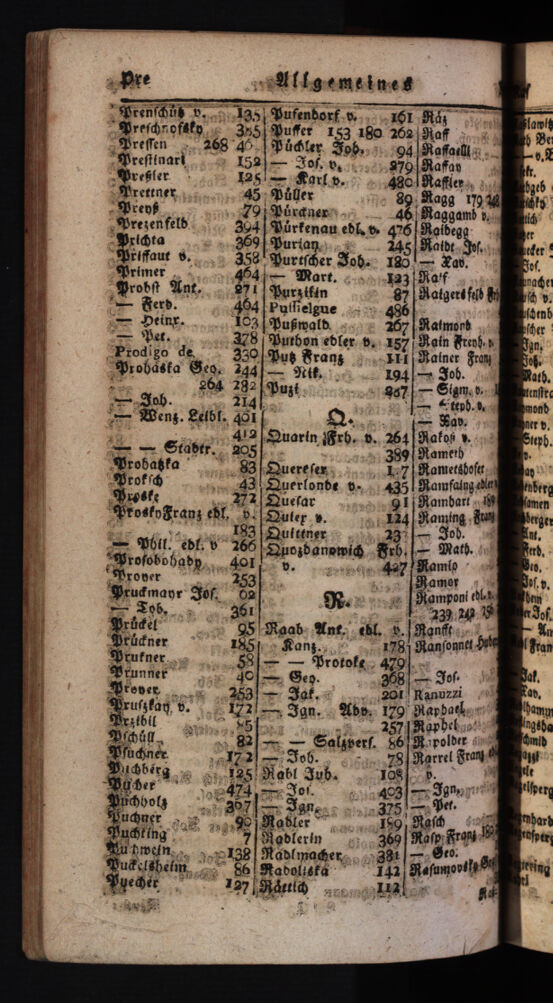 Pre
Allgemeines
Prenschütz v. 135
Preschnofsky 385
Pressen 268 46
Prestinari 152
Preßler 125
Prettner 45
Preyß 79
Prezenfeld 394
Prichta 369
Priffaut v. 358
Primer 464
Probst Ant. 271
— Ferd. 464
— Heinr. 103
— Pet. 378
Prodigo de 330
Prohaska Geo. 244
264 282
— Joh. 214
— Wenz. Leibl. 401
412
— — Stadtr. 205
Prohatzka 83
Proksch 43
Proske 272
Prosky Franz edl. v.
183
— Phil. edl. v 266
Prosobohaby 401
Prover 253
Pruckmayr Jos. 62
— Tob. 361
Prückel 95
Prückner 185
Prukner 58
Prunner 40
Prover 253
Pruszkay v. 172
Przibil 85
Pschüll 82
Psuchner 172
Puchberg 125
Pucher 474
Puchholz 367
Puchner 90
Puchting 7
Puchwein 138
Puckelsheim 86
Puecher 127
Pufendorf v. 161
Puffer 153 180 262
Püchler Joh. 94
— Jos. v. 279
— Karl v. 480
Püller 89
Pürckner 46
Pürkenau edl. v. 476
Purian 245
Purtscher Joh. 180
— Mart. 123
Purzikin 87
Pussielgue 486
Pußwald 267
Puthon edler v. 157
Putz Franz 111
— Nik. 194
Puzi 267
Q.
Quarin Frh. v. 264
389
Quereser
Querlonde v. 435
Quesar 91
Quiex v. 124
Quittner 23
Quozdanowich Frh.
v. 427
R.
Raab Ant. edl. v.
Kanz. 178
— — Protok. 479
— Geo. 368
— Jak. 201
— Ign. Adv. 179
257
— — Salzvers. 86
— Joh. 78
Rabl Joh. 108
— Jos. 403
— Ign. 375
Radler 189
Radlerin 369
Radlmacher 381
Radoliska 142
Rättich 112
Rätz
Raff
Raffaelli
Raffay
Raffler
Ragg 179
Raggamb v.
Raidegg
Raidt Jos.
— Xav.
Raif
Raigersfeld
Raimond
Rain Freyh. v.
Rainer Franz
— Joh.
— Sigm. v.
— Steph. v.
— Xav.
Rakos v.
Rameth
Rametshofer
Ramfaing edler
Ramhart
Raming Franz
— Joh.
— Math.
Ramlo
Ramor
Ramponi edl. v.
239 242
Ranfft
Ransonnet
— Jos.
Ranuzzi
Raphael
Raphel
Rapolder
Rarrel Franz
v.
— Ign.
— Pet.
Rasch
Rasp Franz
— Geo.
Rasumovsky